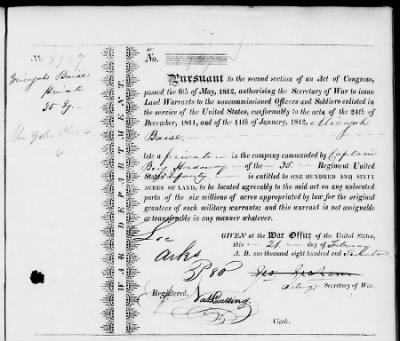 No.
No.
Micajah
Private
35
Pursuant to the second section of an Act of Congress,
passed the 6th of May, 1812, authorising the Secretary of War to issue
Land Warrants to the noncommissioned Officers and Soldiers enlisted
in the service of the United States, conformably to the acts of the 24th of
December, 1811, and of the 11th of January, 1812. Micajah
late a private in the company commanded by Captain
of the 35 Regiment United
States Infantry is entitled to ONE HUNDRED AND SIXTY
ACRES OF LAND, to be located agreeably to the said act on any unlocated
parts of the six millions of acres appropriated by law for the original
grantees of such military warrants; and this warrant is not assignable
or transferable in any manner whatever.
WAR DEPARTMENT.
GIVEN at the War Office of the United States,
this 21 day of February
A. D. one thousand eight hundred and
Geo Graham
Acting Secretary of War.
Loc
Arks
P 80
Registered,
Clerk.